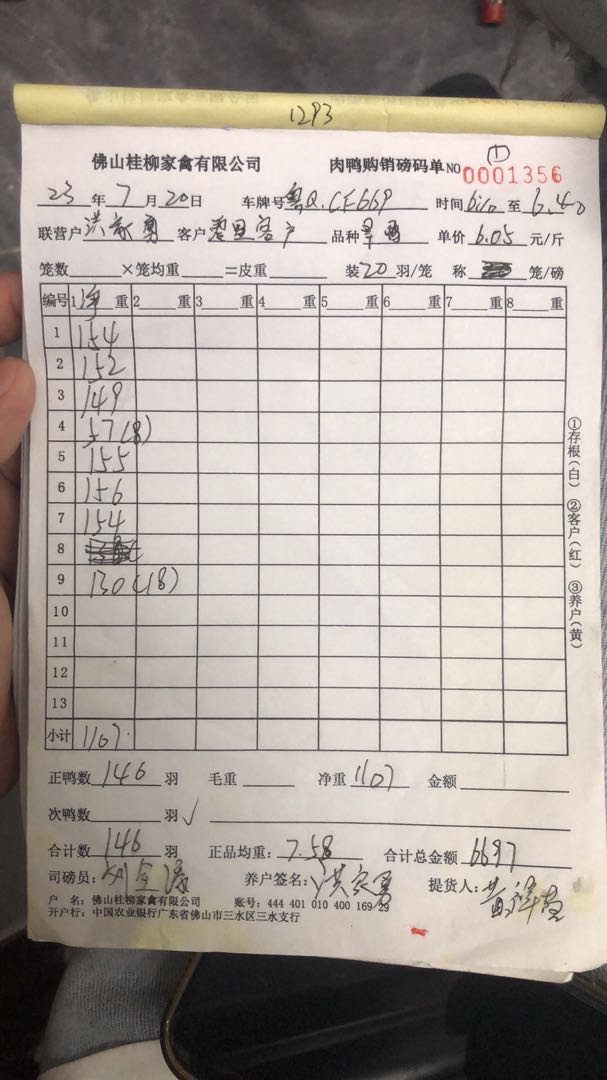 1293
佛山桂柳家禽有限公司 肉鸭购销磅码单 NO 0001356 ①
23 年 7 月 20 日 车牌号 粤Q.CF669 时间 6:10 至 6.40
联营户 洪家勇 客户 客户 品种 单价 6.05 元/斤
笼数 ×笼均重 =皮重 装 20 羽/笼 称 笼/磅
编号 1 净 重 2 重 3 重 4 重 5 重 6 重 7 重 8 重
1 154
2 152
3 149
4 57(8)
5 155
6 156
7 154
8
9 130(18)
10
11
12
13
小计 1107.
①存根(白) ②客户(红) ③养户(黄)
正鸭数 146 羽 毛重 净重 1107 金额
次鸭数 羽 √
合计数 146 羽 正品均重: 7.58 合计总金额 6697
司磅员: 养户签名: 洪家勇 提货人:
户 名: 佛山桂柳家禽有限公司 账号: 444 401 010 400 169 29
开户行: 中国农业银行广东省佛山市三水区三水支行